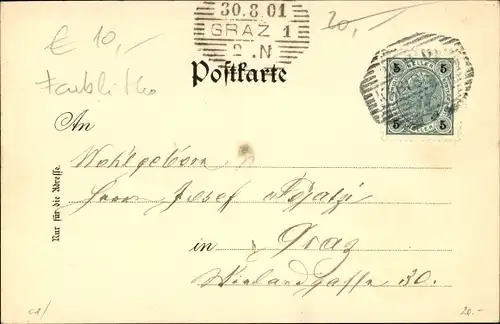 30.8.01
GRAZ 1
2.N
20,-
€ 10,-
Farblitho
Postkarte
5 5
5 5
An
Wohlgeboren
Herrn Josef
in Graz
Wielandgasse 30.
Nur für die Adresse.
20.-